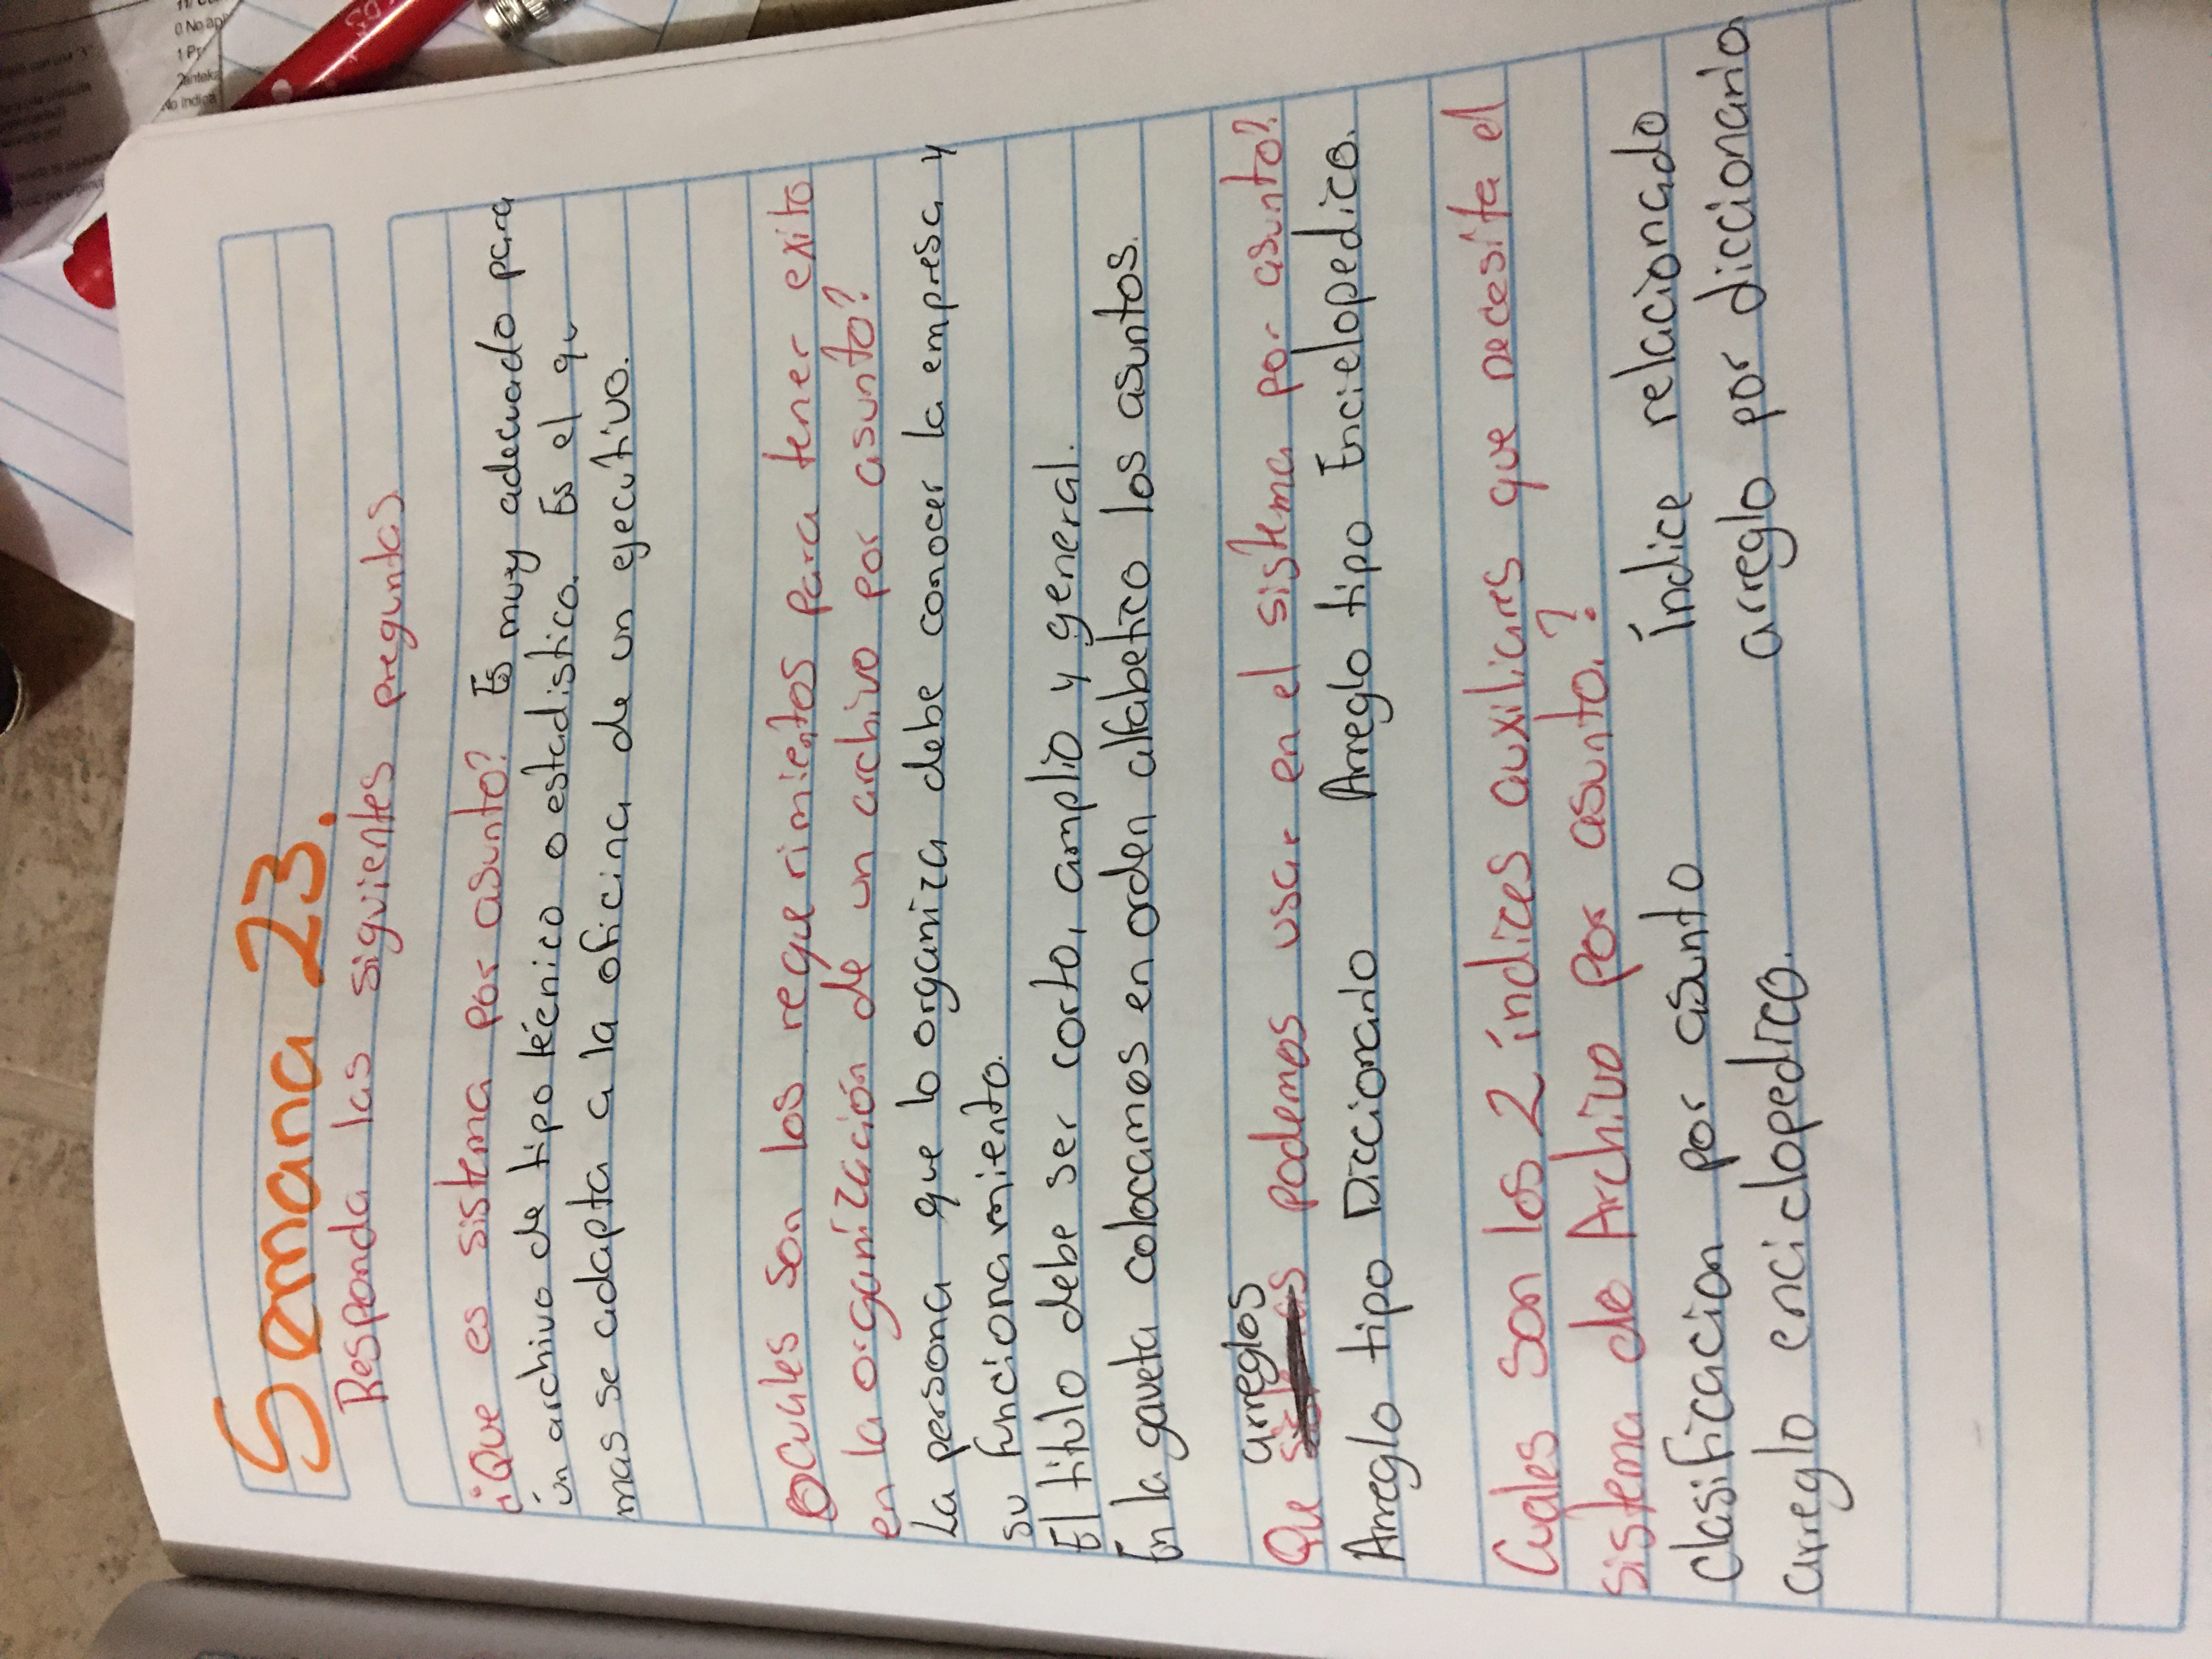 Semana 23.
Responda las siguientes preguntas.
¿Que es sistema por asunto? Es muy adecuado para
un archivo de tipo técnico o estadistico. Es el qu
mas se adapta a la oficina de un ejecutivo.
Cuales son los requerimietos para tener exito
en la organización de un archivo por asunto?
La persona que lo organiza debe conocer la empresa y
su funcionamiento.
El titulo debe ser corto, amplio y general.
En la gaveta colocamos en orden alfabetico los asuntos.
arreglos
Que podemos usar en el sistema por asunto?
Arreglo tipo Diccionario Arreglo tipo Encielopedico.
Cuales son los 2 índices auxiliares que necesita el
sistema de Archivo por asunto.?
Clasificacion por asunto índice relacionado
arreglo enciclopedico. arreglo por diccionario.
0 No ap
1 Pr
No indica